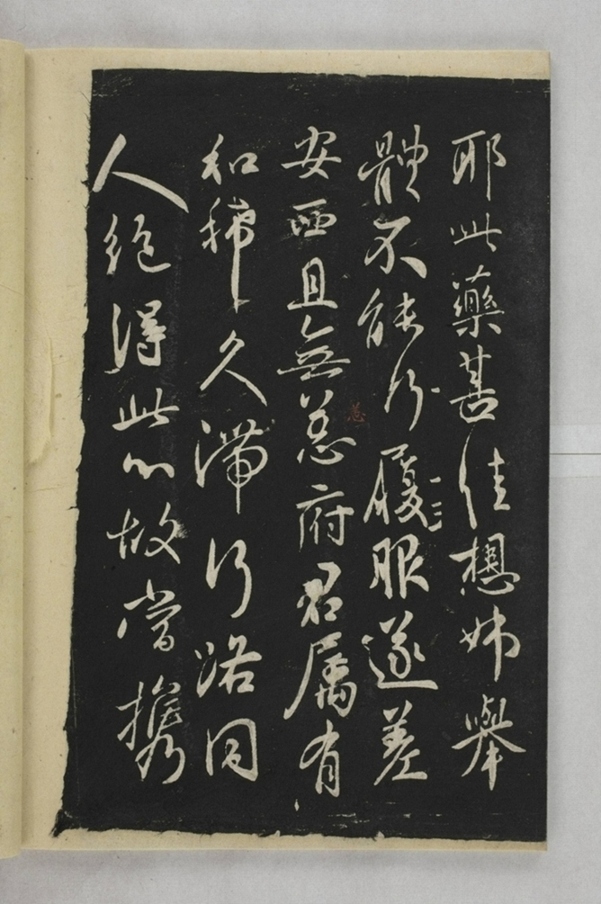 耶此藥甚佳想姊舉
體不能行履服遂差
安西且無恙府君属有
和㨷久滯行路同
人絕得此 故當携
恙